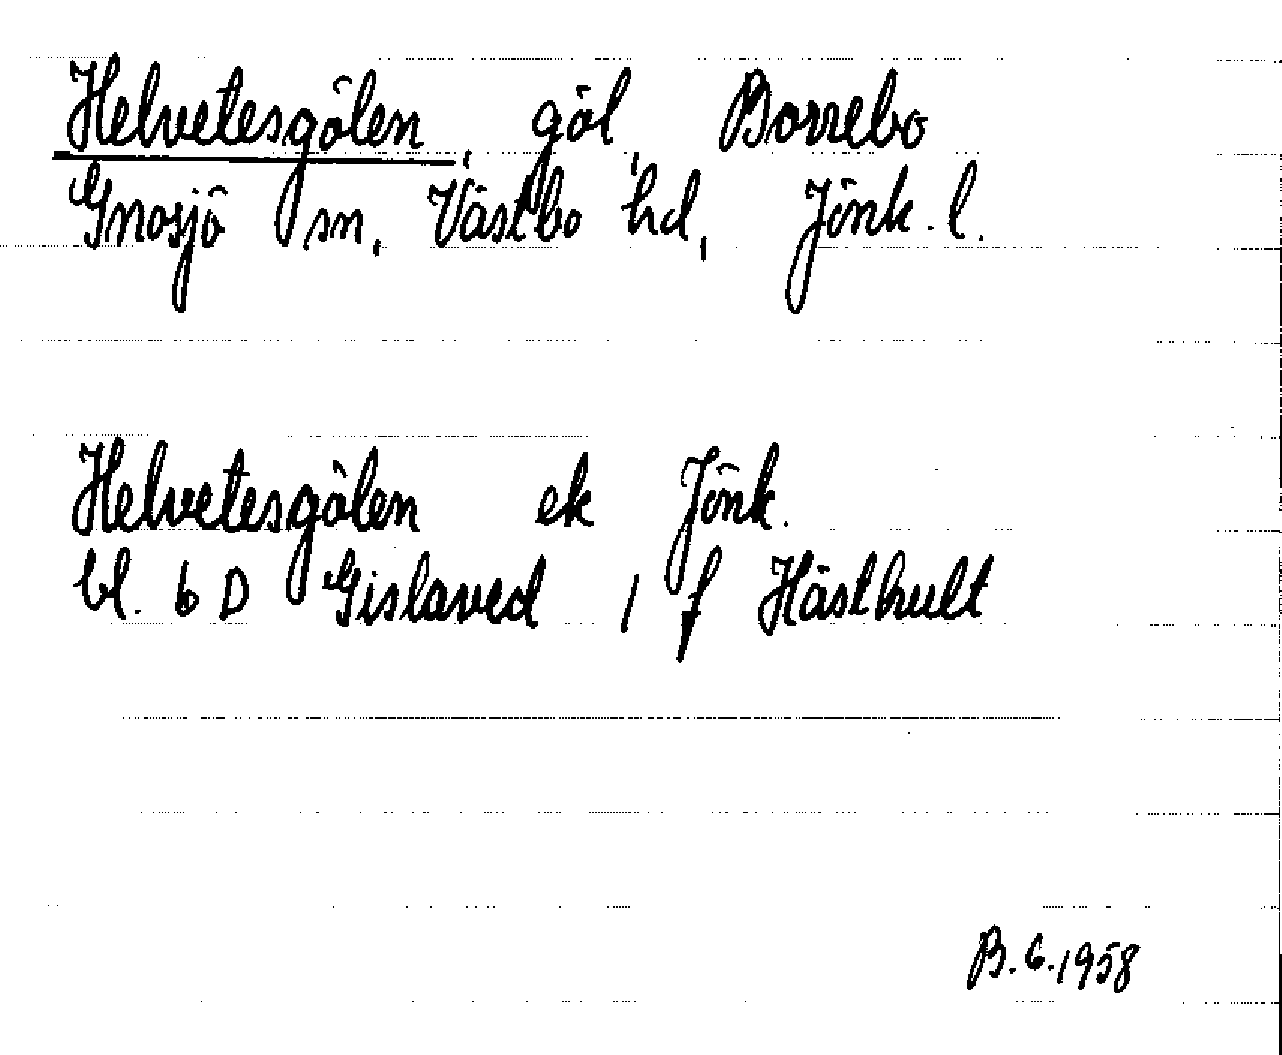 Helvetesgölen, göl, Borrebo
Gnosjö sn, Västbo hd, Jönk. l.
Helvetesgölen ek Jönk.
bl. 6 D Gislaved 1 f Hästhult
B.G.1958